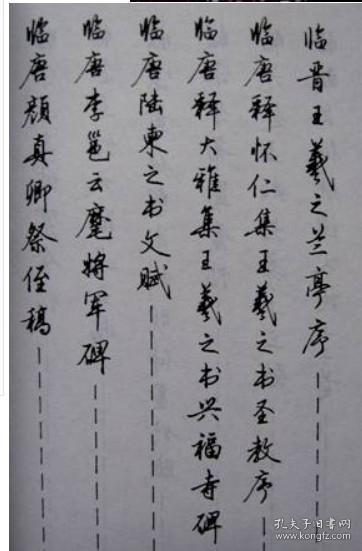 临晋王羲之兰亭序
临唐释怀仁集王羲之书圣教序
临唐释大雅集王羲之书兴福寺碑
临唐陆柬之书文赋
临唐李邕云麾将军碑
临唐颜真卿祭侄稿
孔夫子旧书网